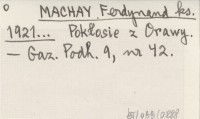 MACHAY Ferdynand ks.
1921... Pokłosie z Orawy.
— Gaz. Podh. 9, nr 42.